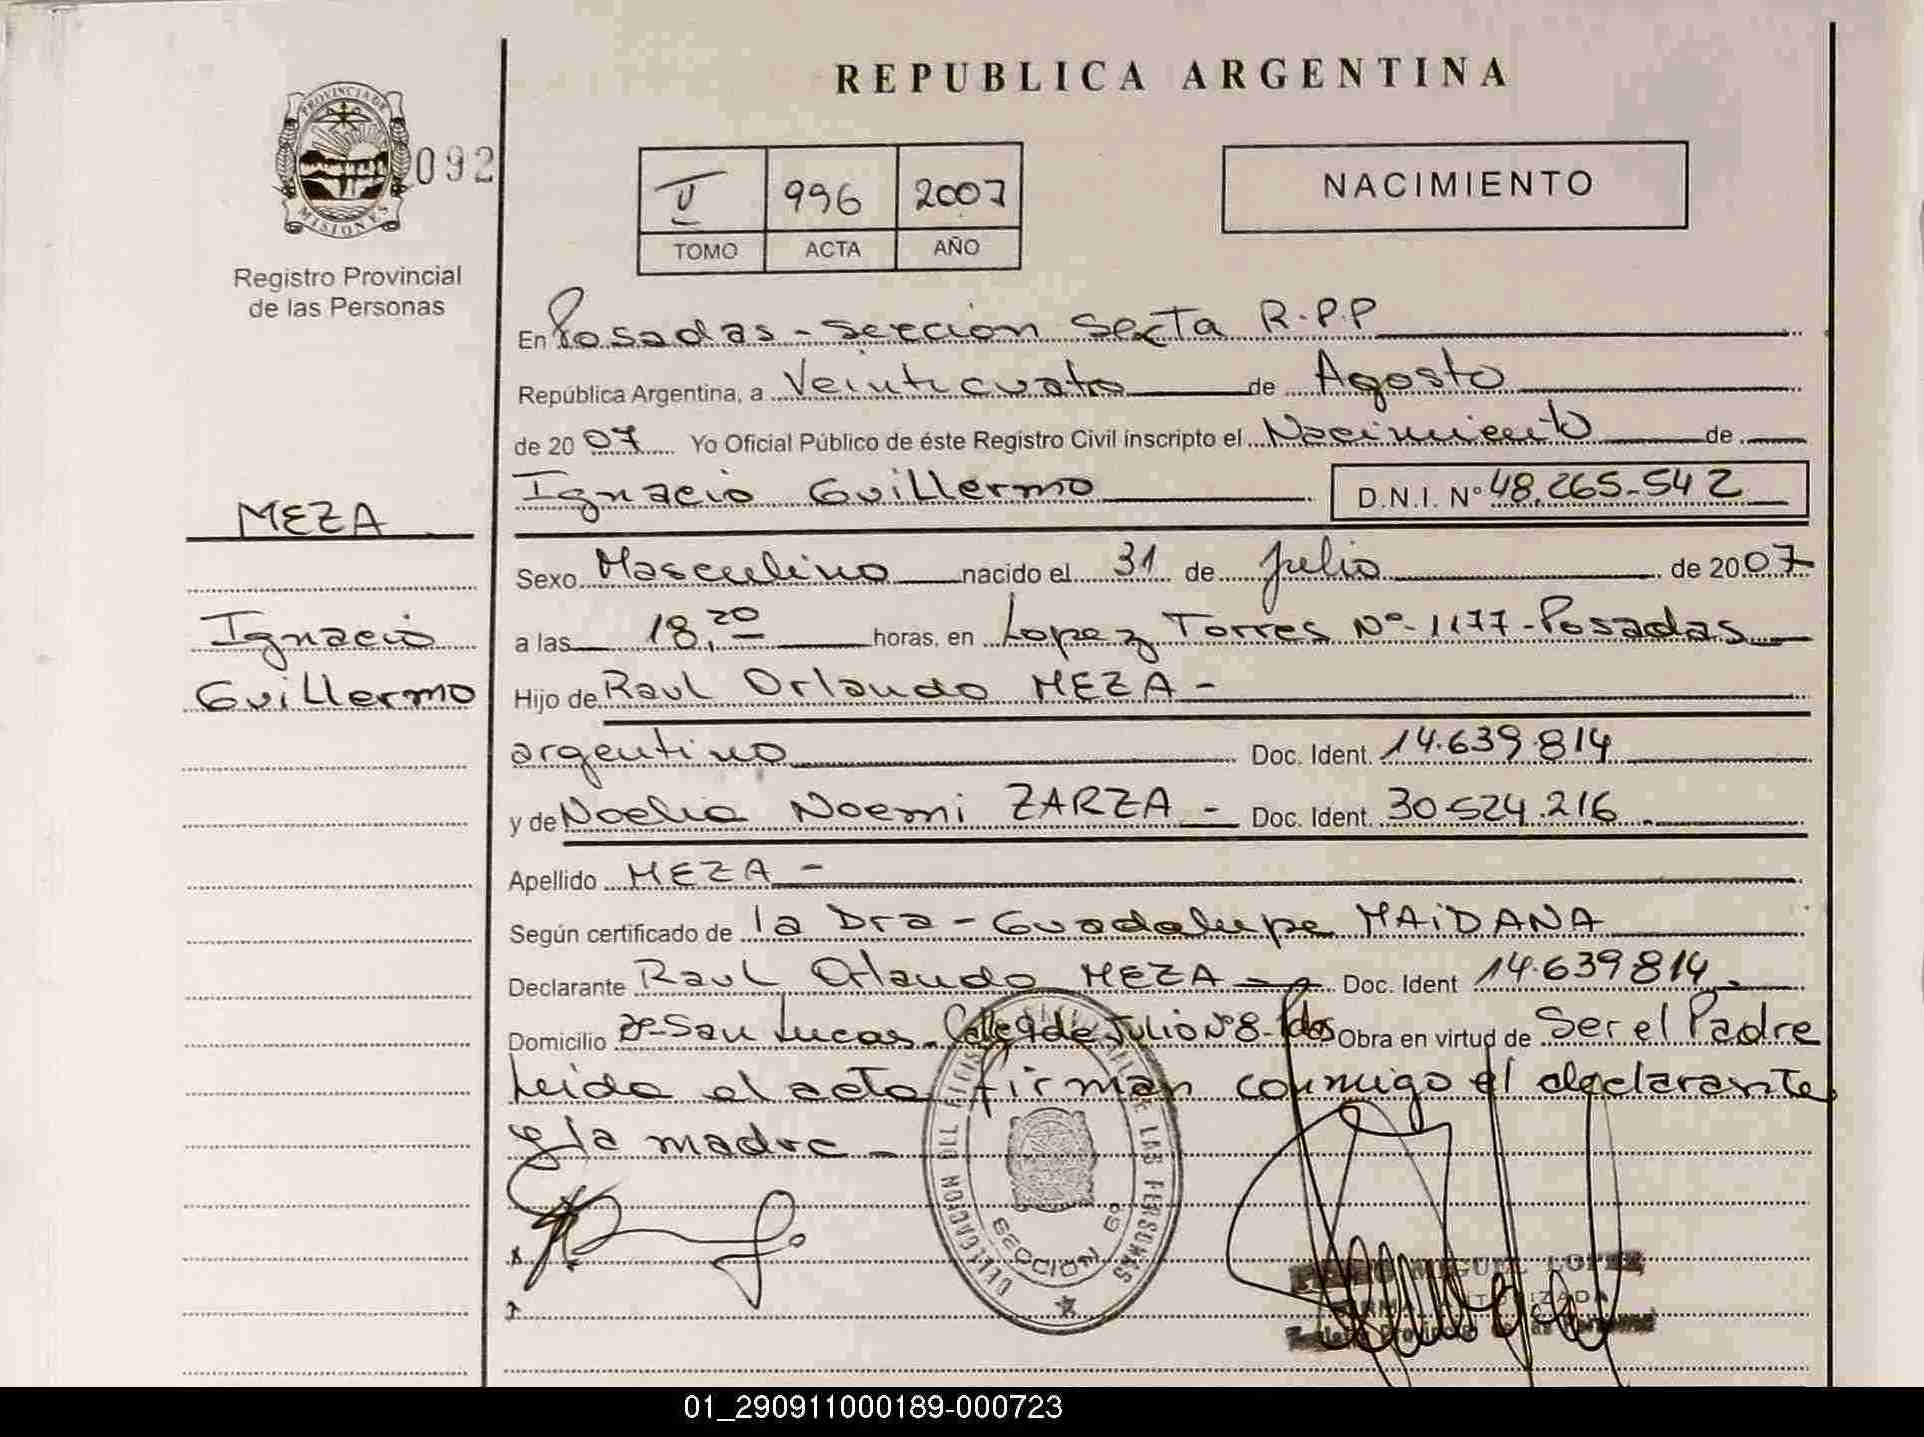 REPUBLICA ARGENTINA
PROVINCIA DE
MISIONES
092
Registro Provincial
de las Personas
V 996 2007
TOMO ACTA AÑO
NACIMIENTO
En Posadas - Seccion Secta R.P.P
República Argentina, a Veinticuatro de Agosto
de 20 07 Yo Oficial Público de éste Registro Civil inscripto el Nacimiento de
Ignacio Guillermo D.N.I. Nº 48.265-542
MEZA
Ignacio
Guillermo
Sexo Masculino nacido el 31 de Julio de 20 07
a las 18,20 horas, en Lopez Torres Nº-1177-Posadas
Hijo de Raul Orlando MEZA -
argentino Doc. Ident. 14.639.814
y de Noelia Noemi ZARZA - Doc. Ident. 30.524.216
Apellido MEZA -
Según certificado de la Dra - Guadalupe MAIDANA
Declarante Raul Orlando MEZA - Doc. Ident 14.639814
Domicilio Bº-San Lucas-Calle 9 de Julio Nº8-Pdas Obra en virtud de Ser el Padre
Leida el acta firman conmigo el declarante
y la madre -
LAS PERSONAS
SECCION 6º
MIGUEL LOPEZ
FIRMA AUTORIZADA
01_290911000189-000723